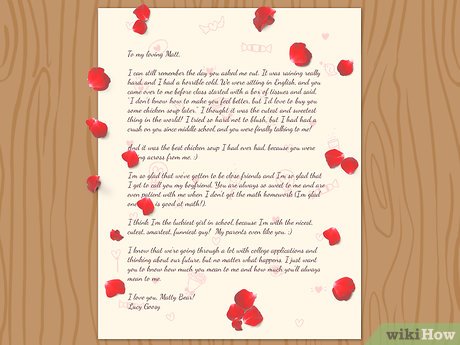 To my loving Matt,
I can still remember the day you asked me out. It was raining really
hard, and I had a horrible cold. We were sitting in English, and you
came over to me before class started with a box of tissues and said,
"I don't know how to make you feel better, but I'd love to buy you
some chicken soup later." I thought it was the cutest and sweetest
thing in the world! I tried so hard not to blush, but I had had a
crush on you since middle school, and you were finally talking to me!
And it was the best chicken soup I had ever had, because you were
ing across from me. :)
I'm so glad that we've gotten to be close friends and I'm so glad that
I get to call you my boyfriend. You are always so sweet to me and are
even patient with me when I don't get the math homework (I'm glad
one is good at math!).
I think I'm the luckiest girl in school, because I'm with the nicest,
cutest, smartest, funniest guy! My parents even like you. :)
I know that we're going through a lot with college applications and
thinking about our future, but no matter what happens, I just want
you to know how much you mean to me and how much you'll always
mean to me.
I love you, Matty Bear!
Lucy Goosy
wikiHow